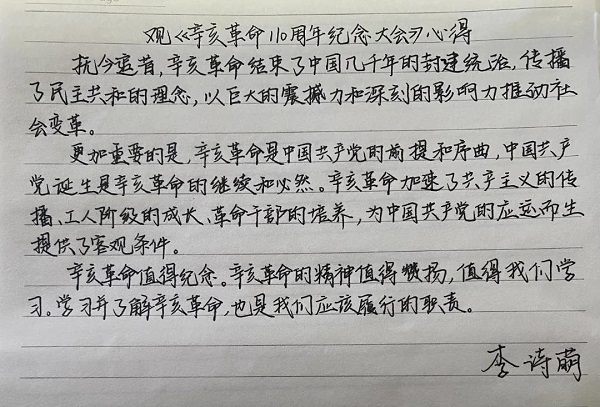 观《辛亥革命110周年纪念大会》心得
抚今追昔,辛亥革命结束了中国几千年的封建统治,传播
了民主共和的理念,以巨大的震撼力和深刻的影响力推动社
会变革。
更加重要的是,辛亥革命是中国共产党的前提和序曲,中国共产
党诞生是辛亥革命的继续和必然。辛亥革命加速了共产主义的传
播、工人阶级的成长、革命干部的培养,为中国共产党的应运而生
提供了客观条件。
辛亥革命值得纪念。辛亥革命的精神值得赞扬,值得我们学
习。学习并了解辛亥革命,也是我们应该履行的职责。
李诗萌